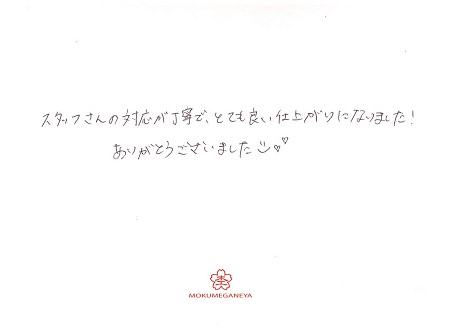 スタッフさんの対応が丁寧で、とても良い仕上がりになりました!
ありがとうございました☺♡♡
MOKUMEGANEYA